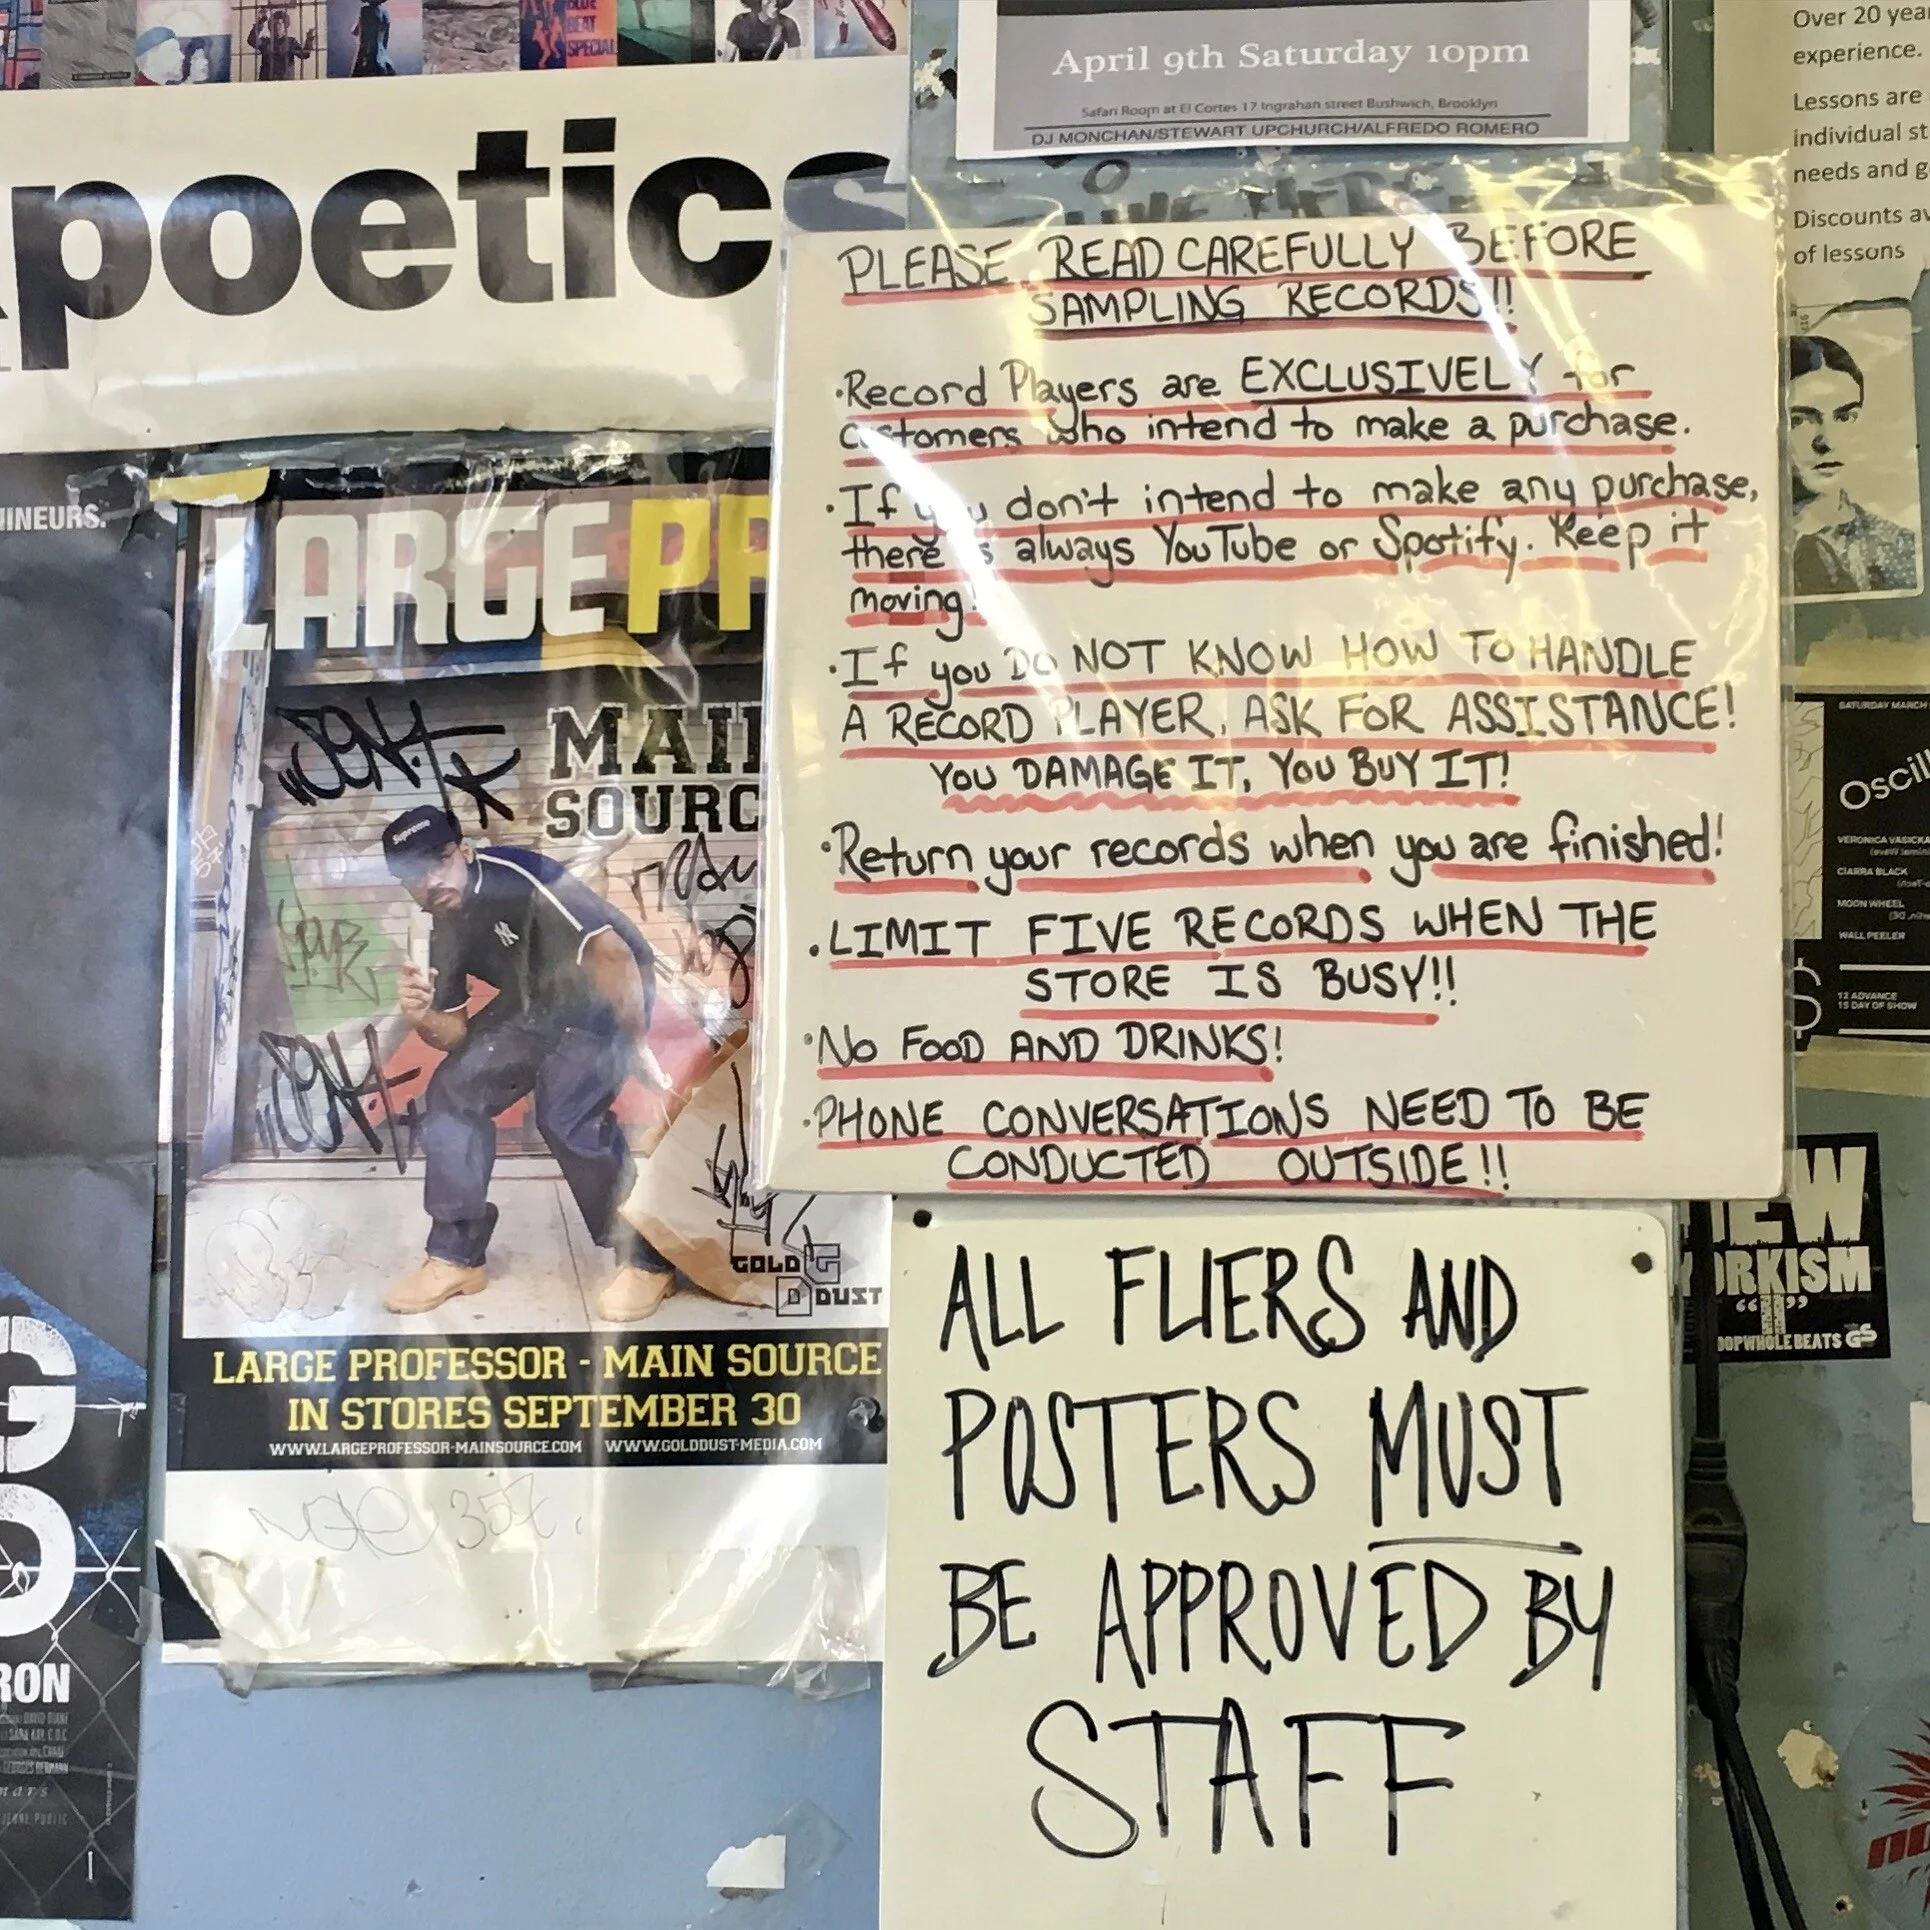 BEAT
SPECIAL
poetics
April 9th Saturday 10pm
Safari Room at El Cortes 17 Ingrahan street Bushwich, Brooklyn
DJ MONCHAN/STEWART UPCHURCH/ALFREDO ROMERO
Over 20
experience.
Lessons are
individual
needs and
Discounts
of lessons
PLEASE READ CAREFULLY BEFORE
SAMPLING RECORDS!!
·Record Players are EXCLUSIVELY for
customers who intend to make a purchase.
·If you don't intend to make any purchase,
there is always YouTube or Spotify. Keep it
moving!
·If you DO NOT KNOW HOW TO HANDLE
A RECORD PLAYER, ASK FOR ASSISTANCE!
YOU DAMAGE IT, YOU BUY IT!
·Return your records when you are finished!
·LIMIT FIVE RECORDS WHEN THE
STORE IS BUSY!!
·NO FOOD AND DRINKS!
·PHONE CONVERSATIONS NEED TO BE
CONDUCTED OUTSIDE!!
ALL FLIERS AND
POSTERS MUST
BE APPROVED BY
STAFF
LARGE PR
MAIN
SOURC
Supreme
NY
GOLD
DUST
LARGE PROFESSOR - MAIN SOURCE
IN STORES SEPTEMBER 30
WWW.LARGEPROFESSOR-MAINSOURCE.COM WWW.GOLDDUST-MEDIA.COM
357
INEURS.
G
RON
SATURDAY MARCH
Oscill
VERONICA VASICKA
CIARRA BLACK
MOON WHEEL
WALL PEELER
$
12 ADVANCE
15 DAY OF SHOW
EW
ORKISM
"I"
OOPWHOLEBEATS